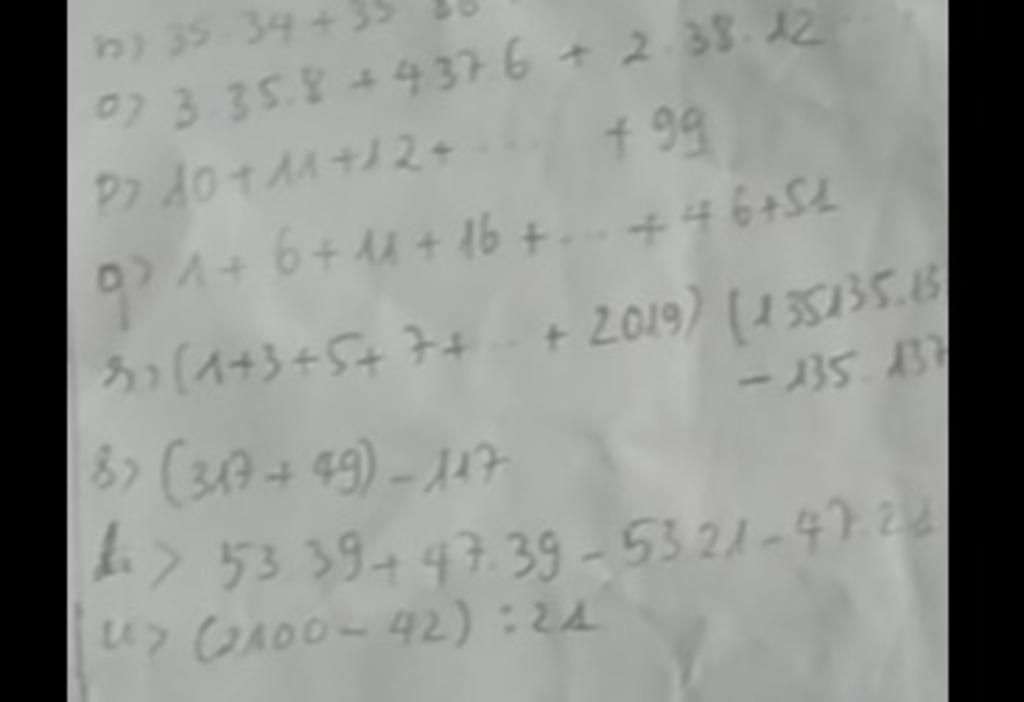 n) 35.34 + 35
o) 3.35.8 + 4.37.6 + 2.38.12
p) 10 + 11 + 12 + .... + 99
q) 1 + 6 + 11 + 16 + .... + 46 + 51
r) (1 + 3 + 5 + 7 + ... + 2019) (135135.
- 135.137
s) (317 + 49) - 117
t) 53.39 + 47.39 - 53.21 - 47.21
u) (2100 - 42) : 21